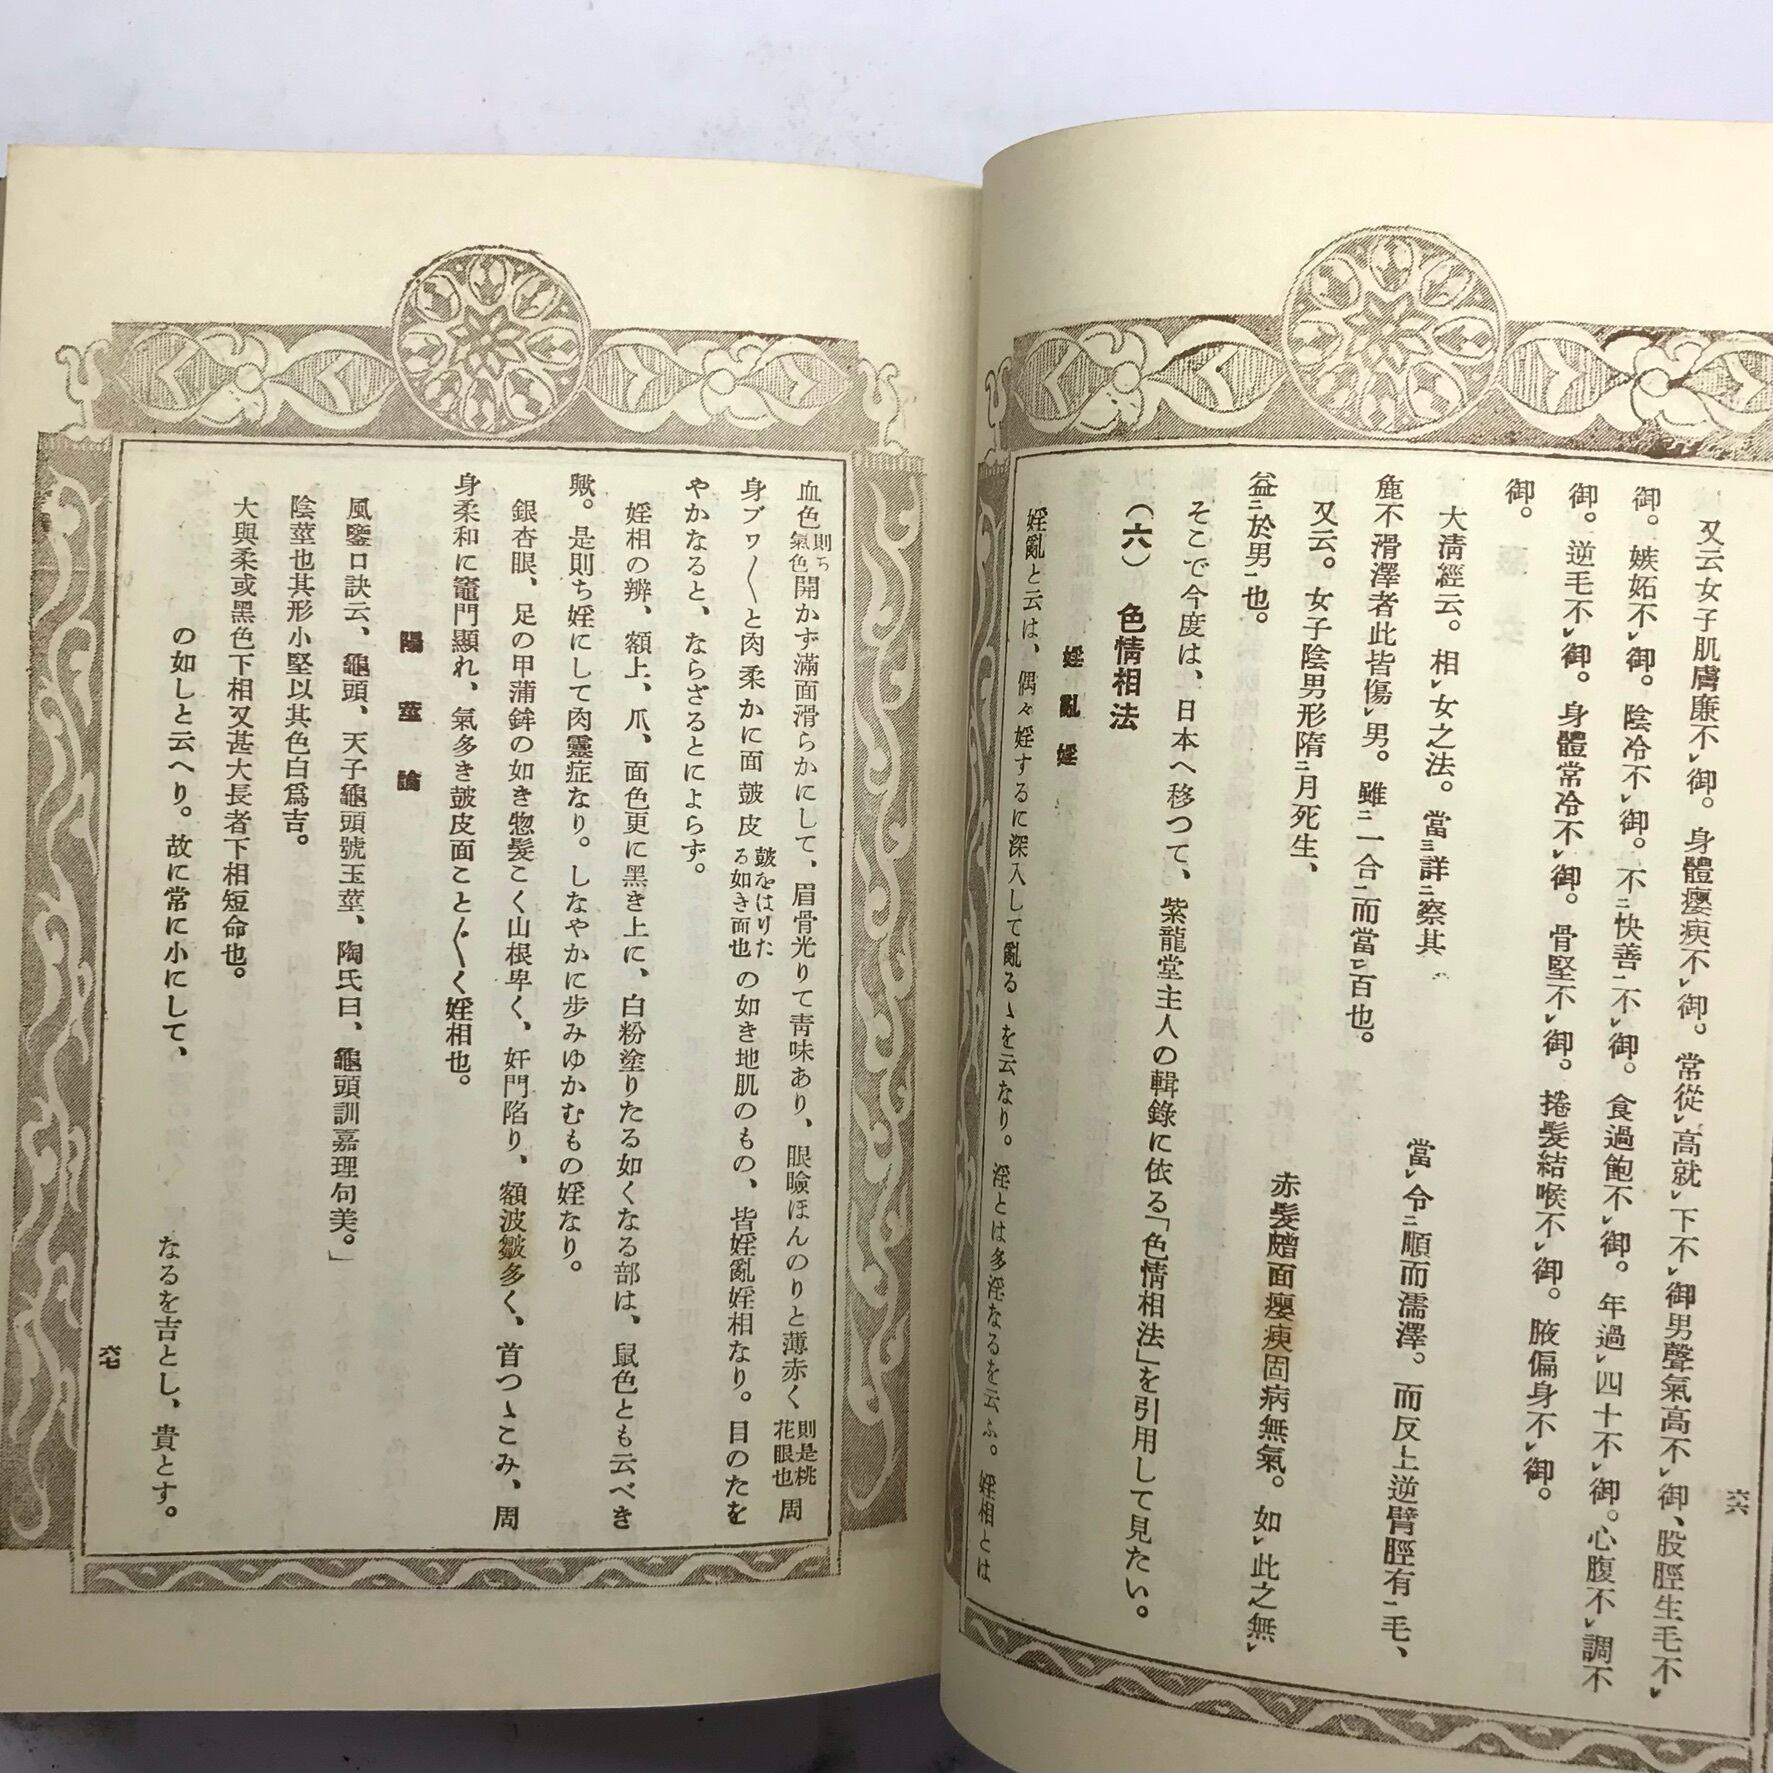 又云女子肌膚麁不㆑御。身體癭痍不㆑御。常從㆑高就㆑下不㆑御男聲氣高不㆑御、股脛生毛不㆑
御。嫉妬不㆑御。陰冷不㆑御。不㆓快善㆒不㆑御。食過飽不㆑御。年過㆑四十不㆑御。心腹不㆑調不
御。逆毛不㆑御。身體常冷不㆑御。骨堅不㆑御。捲髮結喉不㆑御。腋偏身不㆑御。
御。
大淸經云。相㆑女之法。當㆔詳㆓察其
當㆑令㆓順而濡澤。而反上逆臂脛有㆒毛、
麁不滑澤者此皆傷㆑男。雖㆓一合㆒而當㆑百也。
又云。女子陰男形隋㆓月死生、
赤髮䵟面癭痍固病無氣。如㆑此之無㆑
益㆓於男㆒也。
そこで今度は、日本へ移つて、紫龍堂主人の輯錄に依る「色情相法」を引用して見たい。
(六) 色情相法
婬亂婬
婬亂と云は、偶々婬するに深入して亂るゝを云なり。淫とは多淫なるを云ふ。婬相とは
六六
血色則ち氣色開かず滿面滑らかにして、眉骨光りて靑味あり、眼瞼ほんのりと薄赤く則是桃花眼也周
身ブワ〱と肉柔かに面皷皮皷をはりたる如き面也の如き地肌のもの、皆婬亂婬相なり。目のたを
やかなると、ならざるとによらず。
婬相の辨、額上、爪、面色更に黑き上に、白粉塗りたる如くなる部は、鼠色とも云べき
歟。是則ち婬にして肉靈症なり。しなやかに步みゆかむもの婬なり。
銀杏眼、足の甲蒲鉾の如き惣髮こく山根卑く、奸門陷り、額波皺多く、首つゝこみ、周
身柔和に竈門顯れ、氣多き皷皮面こと〲く婬相也。
陽莖論
風鑒口訣云、龜頭、天子龜頭號玉莖、陶氏曰、龜頭訓嘉理句美。」
陰莖也其形小堅以其色白爲吉。
大與柔或黑色下相又甚大長者下相短命也。
の如しと云へり。故に常に小にして、
なるを吉とし、貴とす。
六七